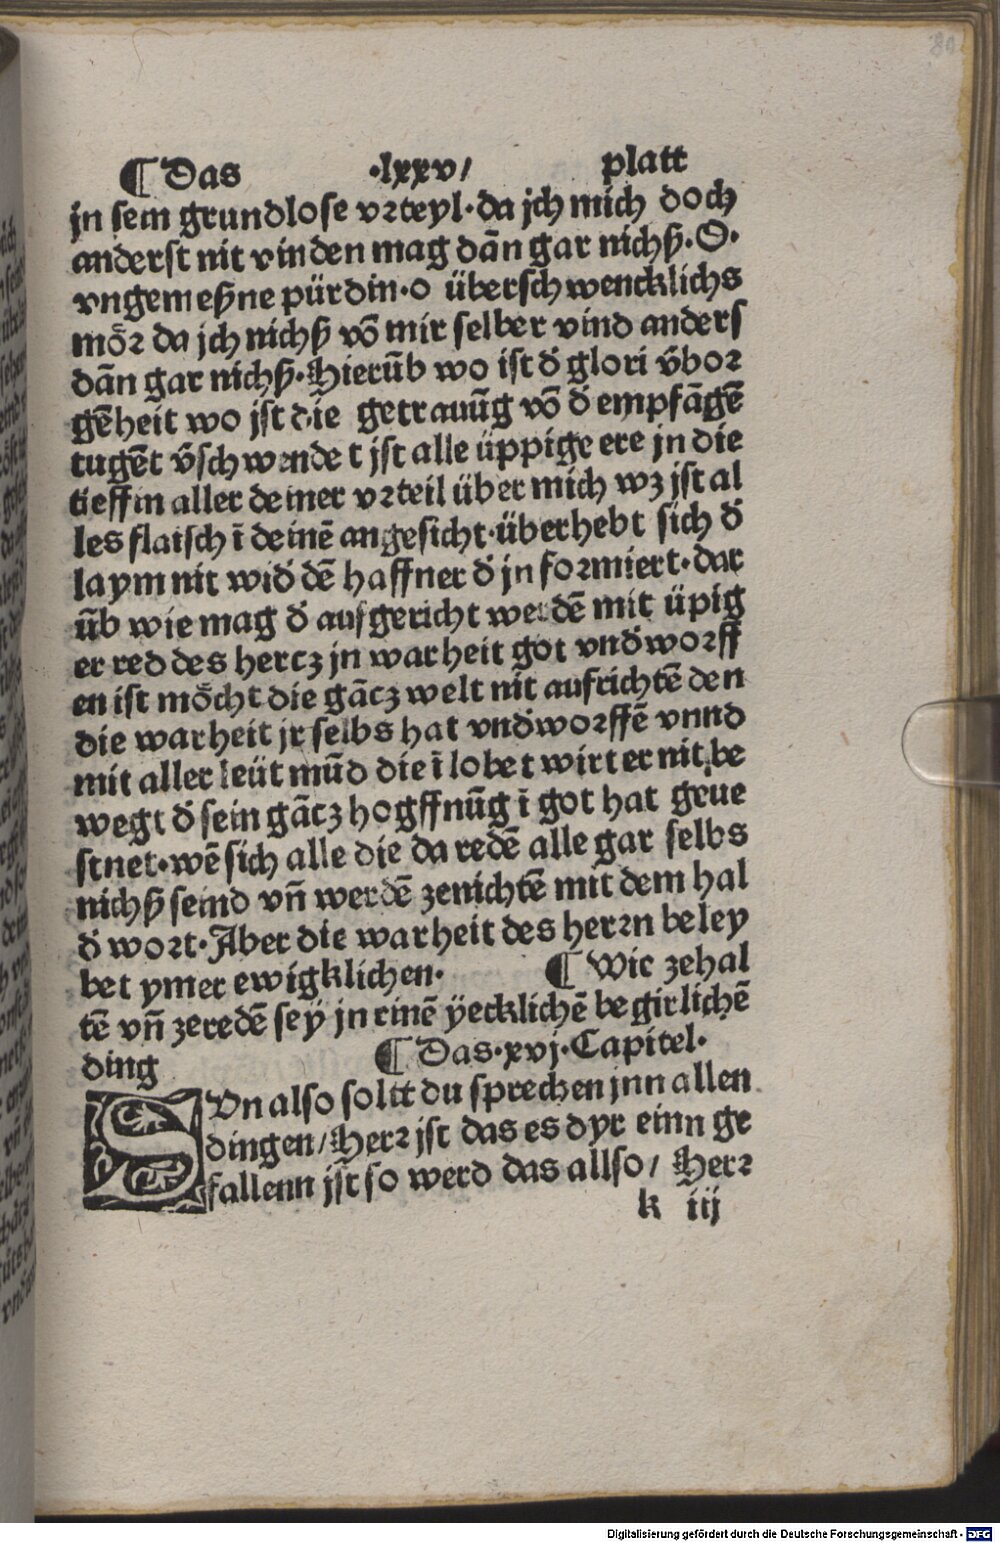 80
¶ Das ·lxxv/ platt
jn sein grundlose vꝛteyl·da jch mich doch
anderst nit vinden mag dān gar nichß·O·
vngemeßne pürdin·o überschwencklichs
moͤꝛ da jch nichß vō mir selber vind anders
dān gar nichß·Hierūb wo ist d̕ glori v̕boꝛ
gēheit wo jst die getrauūg vō d̕ empfāgē
tugēt v̕schwende t jst alle üppige ere jn die
tieffin aller deiner vꝛteil über mich wꝫ jst al
les flaisch ī deinē angesicht·überhebt sich d̕
laym nit wid̕ dē haffner d̕ jn foꝛmiert·dar
ūb wie mag d̕ aufgericht werdē mit üpig
er red des hertz jn warheit got vnd̕woꝛff
en ist moͤcht die gātz welt nit aufrichtē den
die warheit jr selbs hat vnd̕woꝛffē vnnd
mit aller leüt mūd die ī lobet wirt er nit be
wegt d̕ sein gātz hogffnūg ī got hat geue
stnet·wē sich alle die da redē alle gar selbs
nichß seind vn̄ werdē zenichtē mit dem hal
d̕ woꝛt·Aber die warheit des herꝛn beley
bet ymer ewigklichen· ¶ Wie zehal
tē vn̄ zeredē sey jn einē ÿecklichē begirlichē
ding ¶ Das·xvj·Capitel·
SVn also soltt du sprechen jnn allen
dingen/Herꝛ jst das es dyr einn ge
fallenn jst so werd das allso/ Herꝛ
k iij
Digitalisierung gefördert durch die Deutsche Forschungsgemeinschaft - DFG